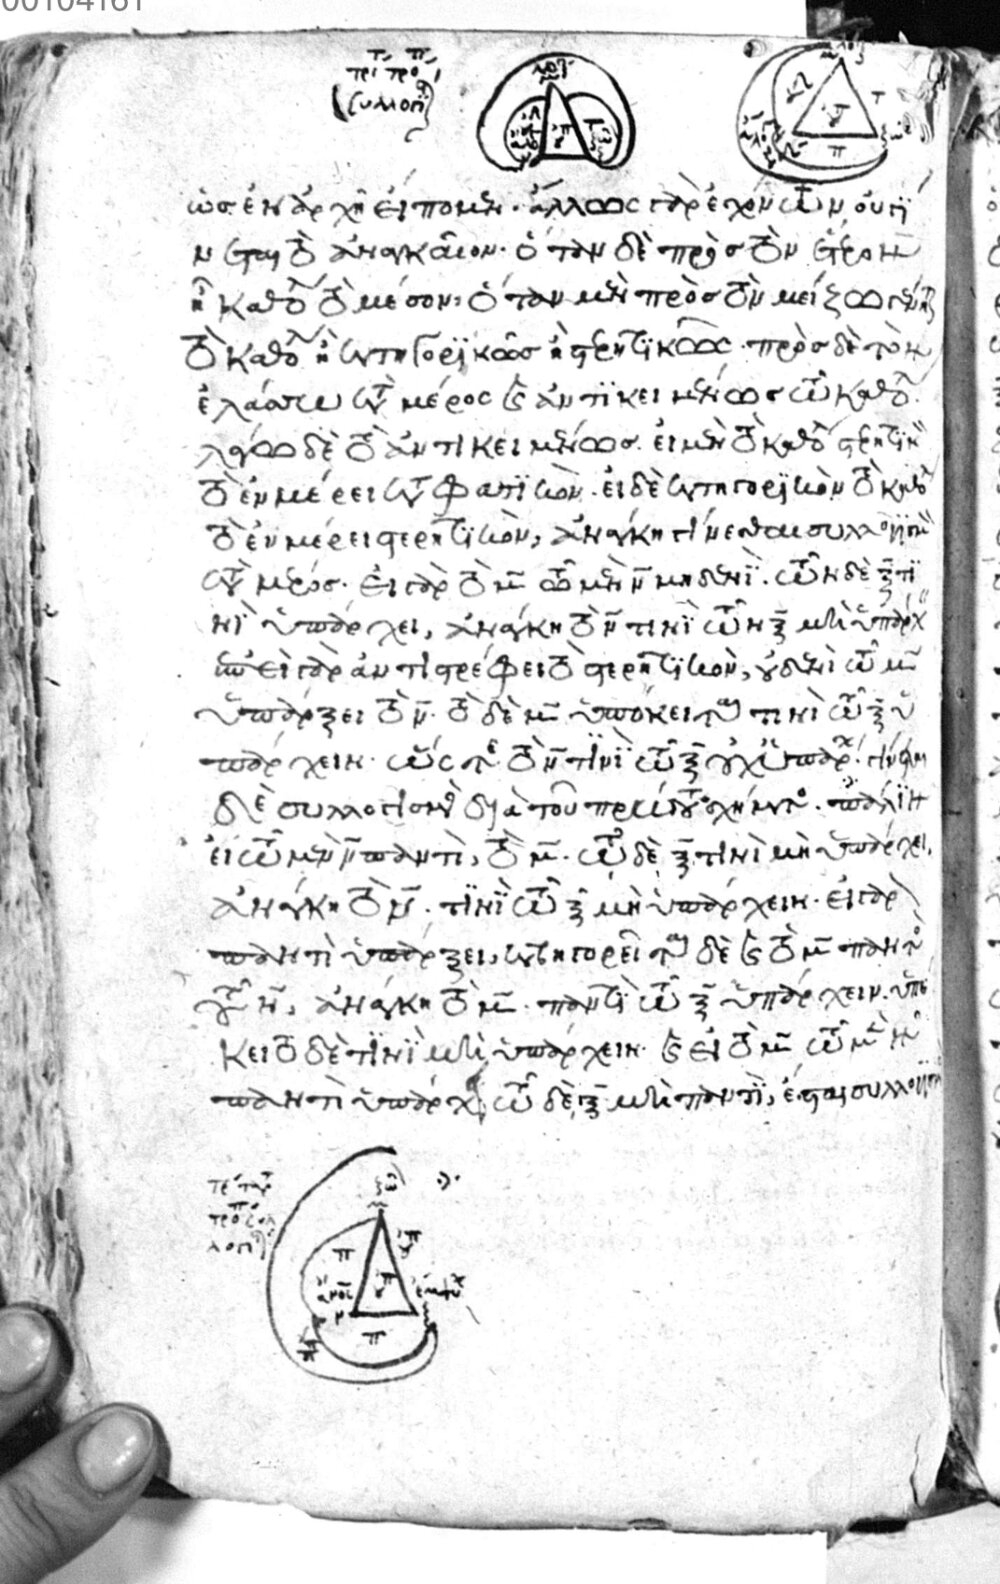 00104161
ὡς ἐν ἀρχῇ εἴπομεν· ἄλλως γὰρ ἐχόντων οὐ γί
νεται τὸ ἀναγκαῖον· ὅταν δὲ πρὸς τὸν ἕτερον
ἢ καθόλου τὸ μέσον, ὅταν μὲν πρὸς τὸν μείζω γένηται
τὸ καθόλου ἢ κατηγορικῶς ἢ στερητικῶς· πρὸς δὲ τὸν
ἐλάττω κατὰ μέρος καὶ ἀντικειμένως τῷ καθόλου.
λέγω δὲ τὸ ἀντικειμένως. εἰ μὲν τὸ καθόλου στερητικὸν
τὸ ἐν μέρει καταφατικόν· εἰ δὲ κατηγορικὸν τὸ καθόλου
τὸ ἐν μέρει στερητικόν, ἀνάγκη γίνεσθαι συλλογισμὸν
κατὰ μέρος· εἰ γὰρ τὸ μ τῷ μὲν ν μηδενί· τῷ δὲ ξ τι
νὶ ὑπάρχει, ἀνάγκη τὸ ν τινὶ τῷ ξ μὴ ὑπάρχ
ειν· ἐπεὶ γὰρ ἀντιστρέφει τὸ στερητικόν, οὐδενὶ τῷ μ
ὑπάρξει τὸ ν· τὸ δὲ μ ὑπόκειται τινὶ τῷ ξ ὑ
πάρχειν· ὥστε τὸ ν τινὶ τῷ ξ οὐχ ὑπάρχει· γίνεται
δὲ συλλογισμὸς διὰ τοῦ πρώτου σχήματος· πάλιν
εἰ τῷ μὲν ν παντὶ, τὸ μ· τῷ δὲ ξ τινὶ μὴ ὑπάρχει,
ἀνάγκη τὸ ν· τινὶ τῷ ξ μὴ ὑπάρχειν· εἰ γὰρ
παντὶ ὑπάρξει, κατηγορεῖται δὲ καὶ τὸ μ παντὸς
τοῦ ν, ἀνάγκη τὸ μ· παντὶ τῷ ξ ὑπάρχειν· ὑπέ
κειτο δὲ τινὶ μὴ ὑπάρχειν· καὶ εἰ τὸ μ τῷ μὲν ν
παντὶ ὑπάρχει, τῷ δὲ ξ μὴ παντὶ, ἔσται συλλογισμὸς